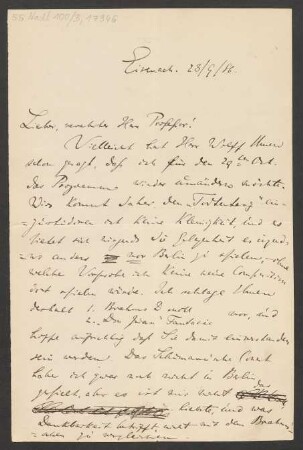 Eisenach. 23/9/86.
Lieber, verehrter Herr Professor!
Vielleicht hat Herr Wolff Ihnen
schon gesagt, daß ich für den 29ten Oct.
das Programm wieder umändern möchte.
Dies kommt daher den
ist keine Kleinigkeit, und es
bietet sich nirgends die Gelegenheit es irgend-
wo anders vor Berlin zu spielen, ohne
welche Vorprobe ich keine neue Composition
dort spielen würde. Ich schlage Ihnen
deshalb 1. Brahms D moll
2. Don Juan Fantasie vor, und
hoffe aufrichtig daß Sie damit einverstanden
sein werden. Das Schumann'sche Conc
habe ich zwar auch nicht in Berlin
gespielt, aber es ist mir nicht das
liebste, und was
Dankbarkeit betrifft, nicht mit dem Brahms-
schen zu vergleichen.